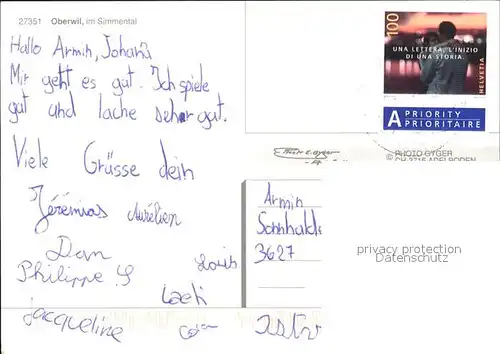 27351 Oberwil, im Simmental
Hallo Armin, Johana
Mir geht es gut. Ich spiele
gut und lache sehr gut.
Viele Grüsse dein
Jérémias Aurélien
Dan
Philippe S
Louis
Laeti
Jacqueline
100
UNA LETTERA, L'INIZIO
DI UNA STORIA.
HELVETIA
A PRIORITY
PRIORITAIRE
© PHOTO GYGER
CH-3715 ADELBODEN
Armin
3627
privacy protection
Datenschutz